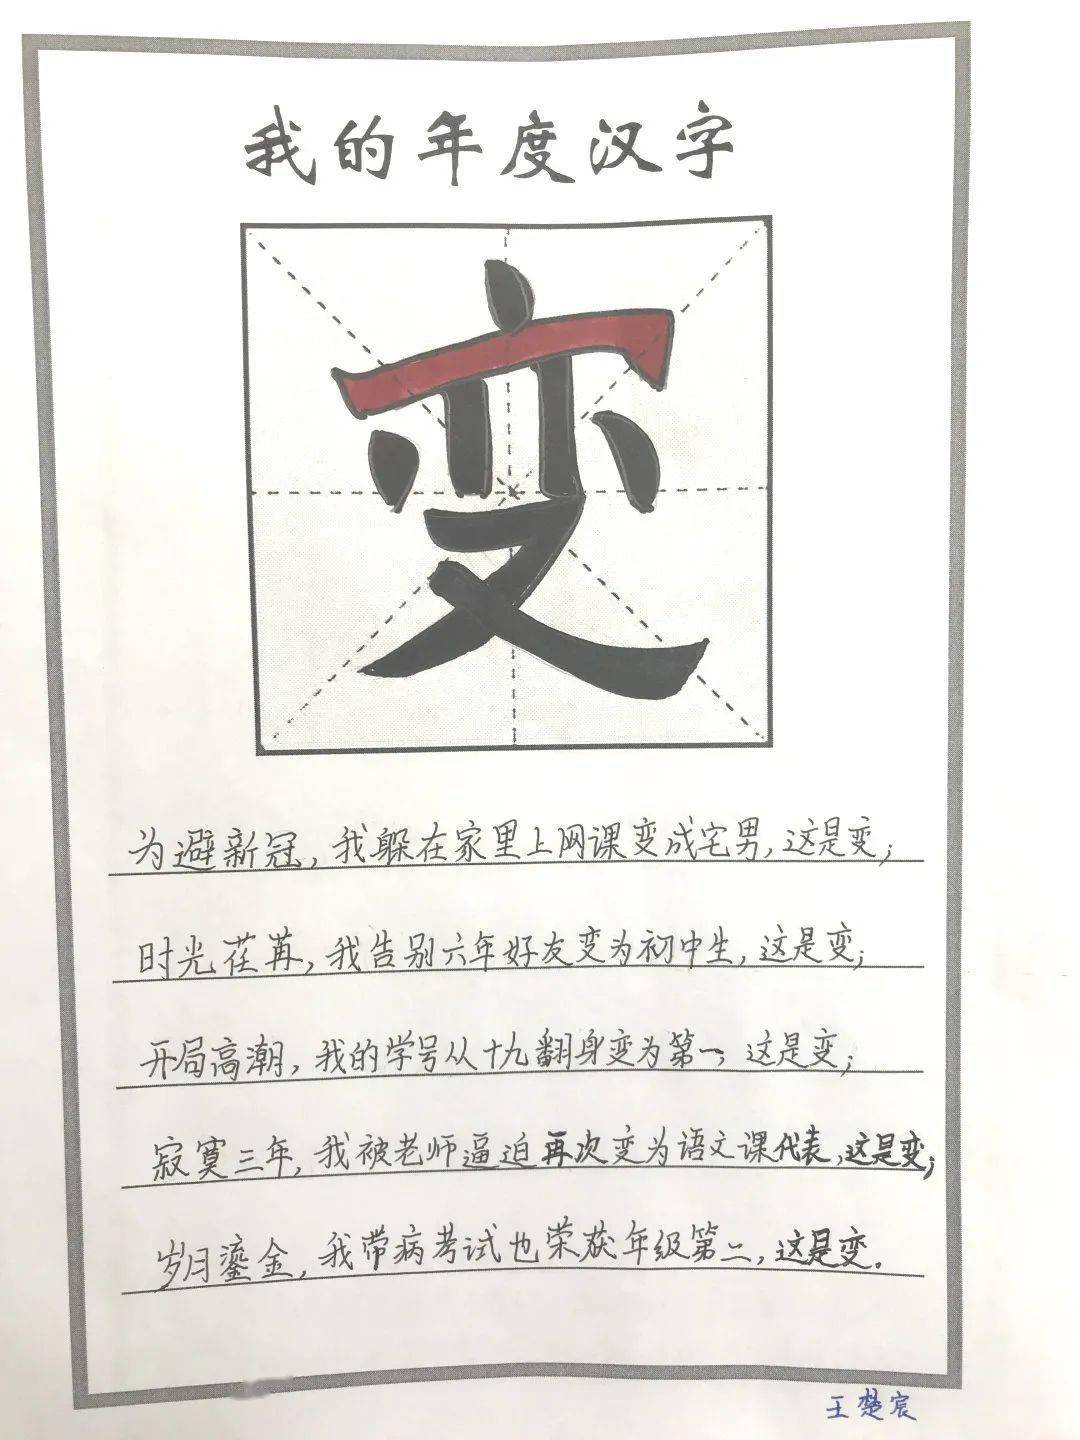 我的年度汉字
变
为避新冠，我躲在家里上网课变成宅男，这是变；
时光荏苒，我告别六年好友变为初中生，这是变；
开局高潮，我的学号从十九翻身变为第一，这是变；
寂寞三年，我被老师逼迫再次变为语文课代表，这是变；
岁月鎏金，我带病考试也荣获年级第二，这是变。
王楚宸